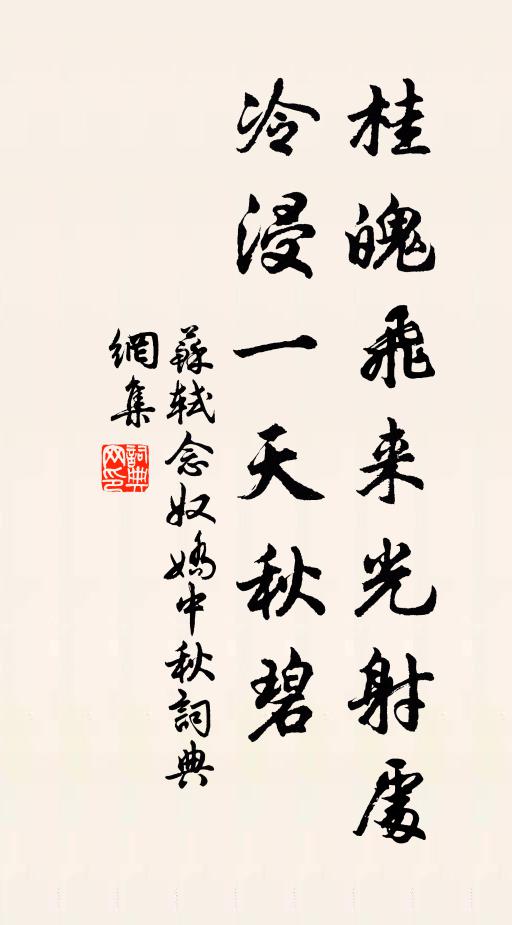 桂魄飛来光射處
冷浸一天秋碧
蘇軾念奴嬌中秋詞典
網集
詞典网印